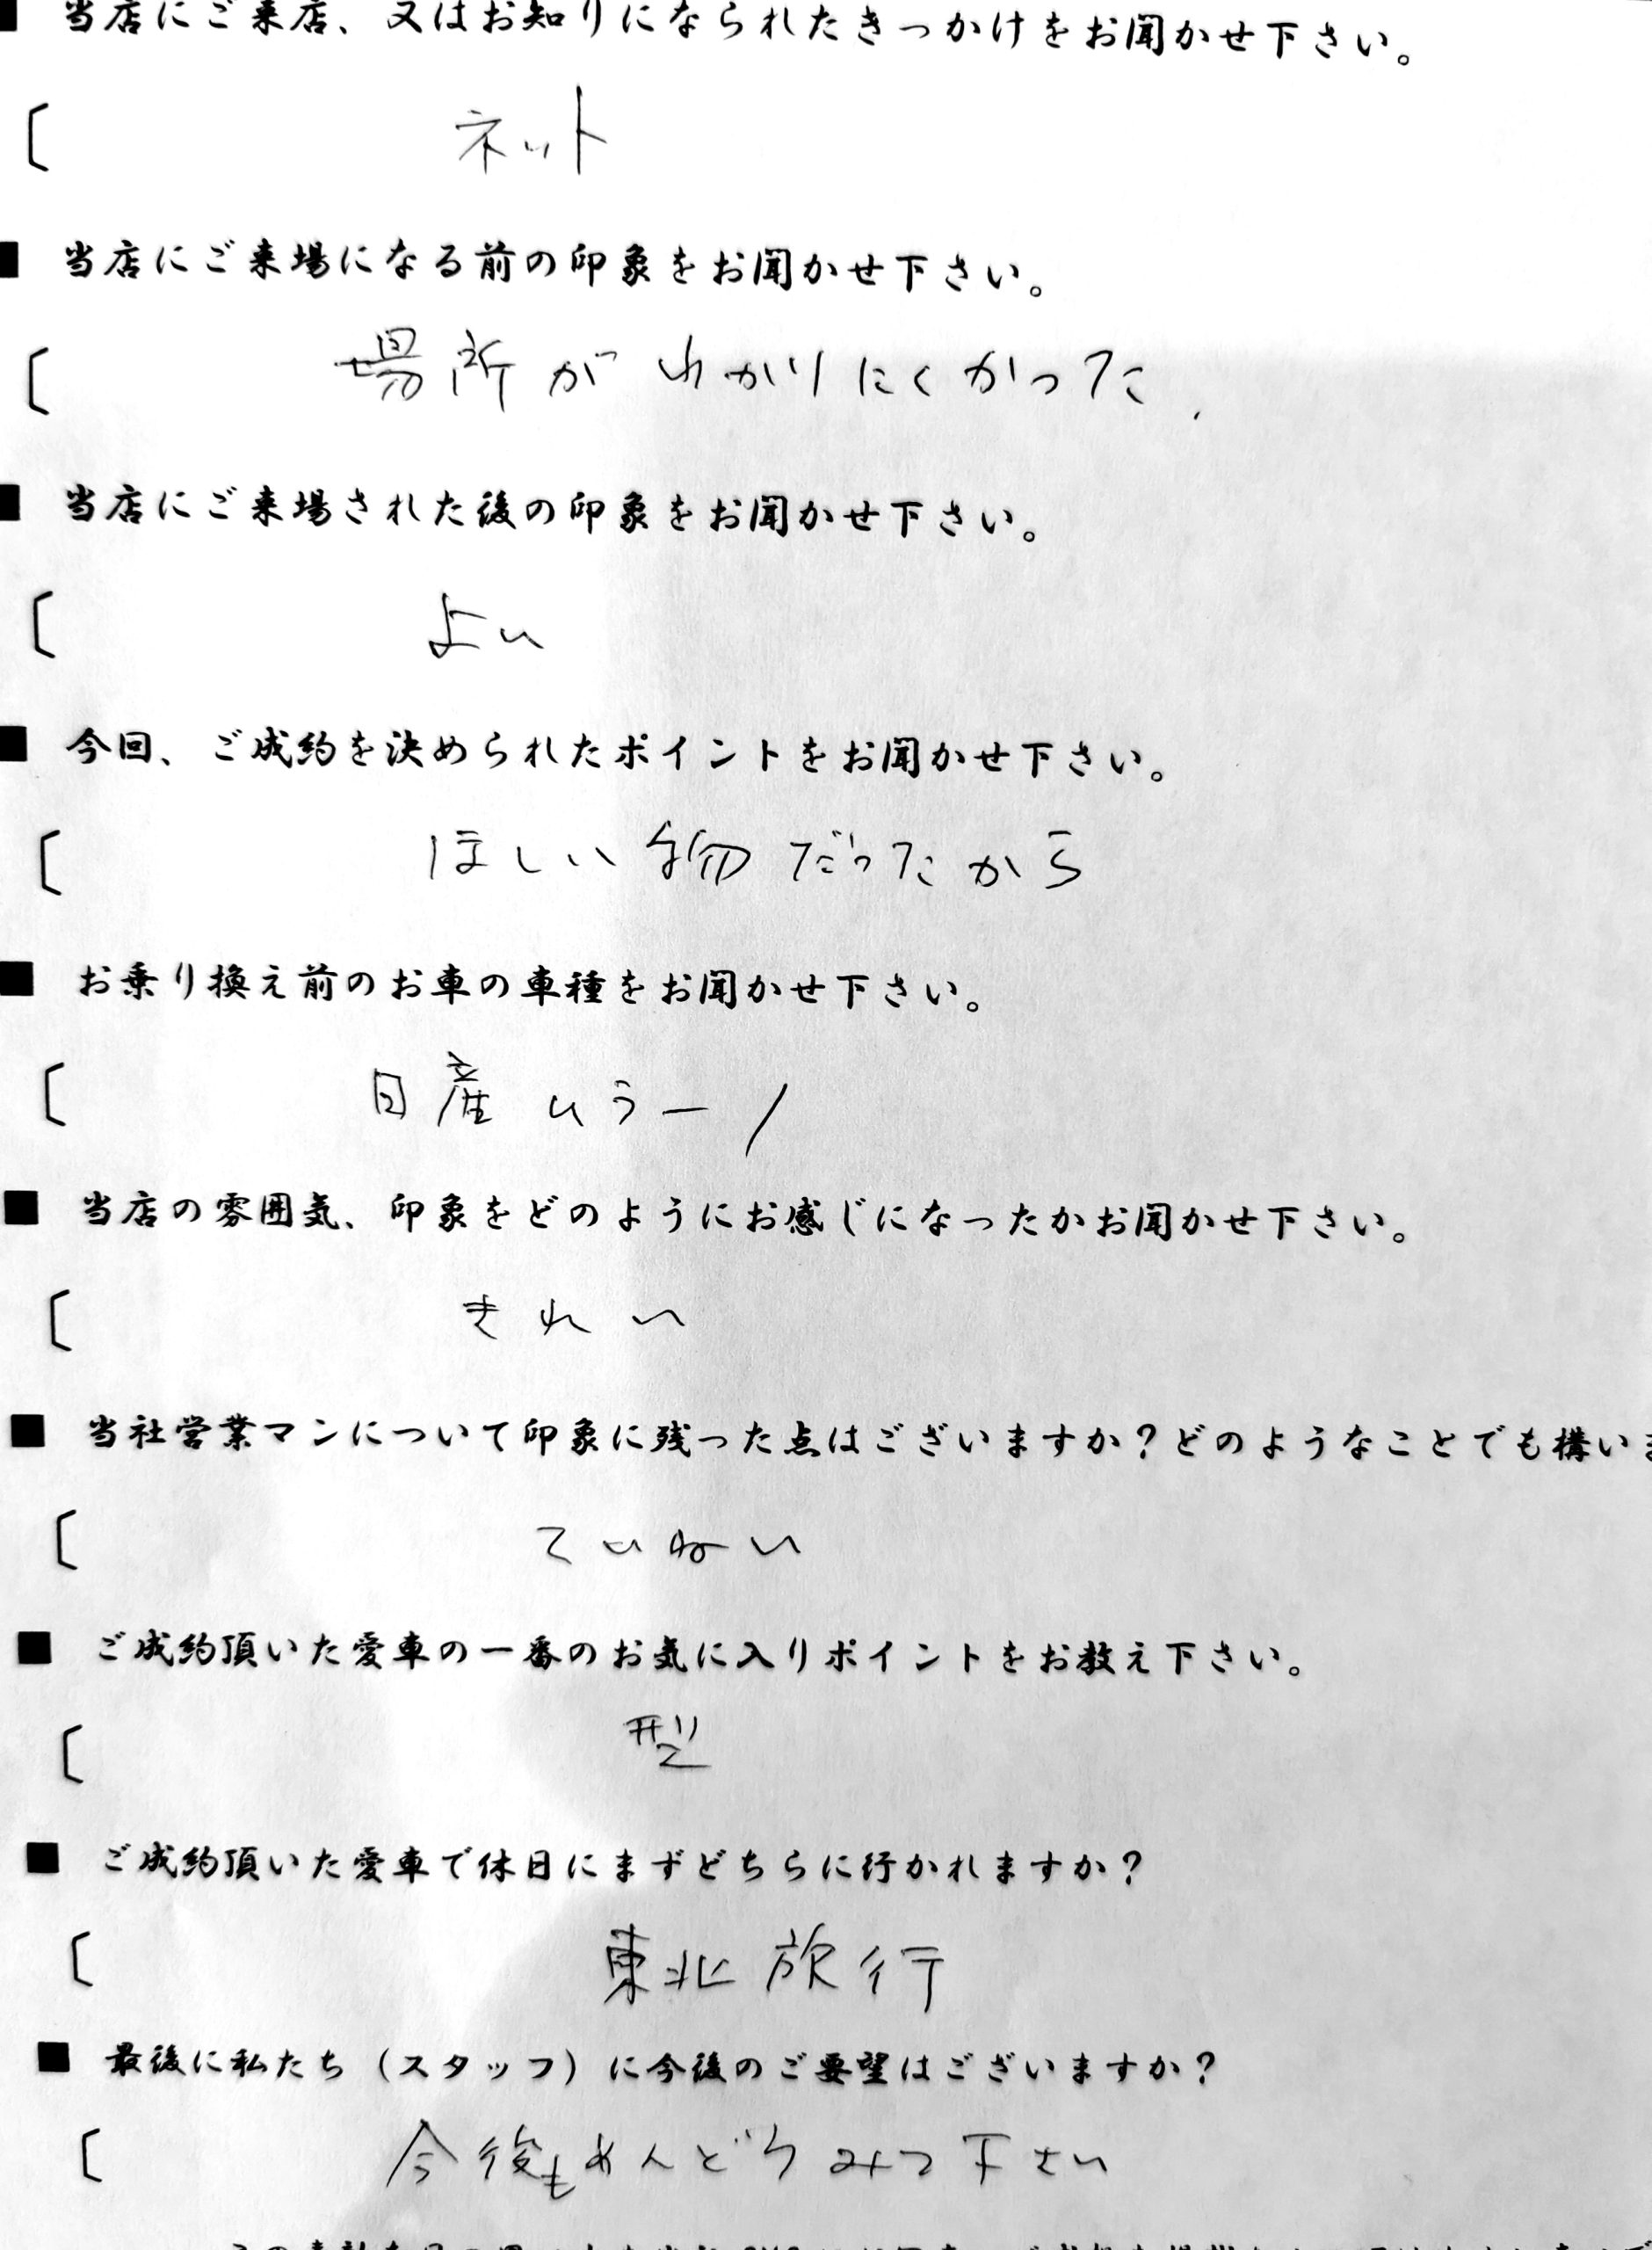 ■ 当店にご来店、又はお知りになられたきっかけをお聞かせ下さい。
〔 ネット
■ 当店にご来場になる前の印象をお聞かせ下さい。
〔 場所がわかりにくかった.
■ 当店にご来場された後の印象をお聞かせ下さい。
〔 よい
■ 今回、ご成約を決められたポイントをお聞かせ下さい。
〔 ほしい物だったから
■ お乗り換え前のお車の車種をお聞かせ下さい。
〔 日産ムラーノ
■ 当店の雰囲気、印象をどのようにお感じになったかお聞かせ下さい。
〔 きれい
■ 当社営業マンについて印象に残った点はございますか?どのようなことでも構いま
〔 ていねい
■ ご成約頂いた愛車の一番のお気に入りポイントをお教え下さい。
〔 型
■ ご成約頂いた愛車で休日にまずどちらに行かれますか?
〔 東北旅行
■ 最後に私たち(スタッフ)に今後のご要望はございますか?
〔 今後もめんどうみて下さい